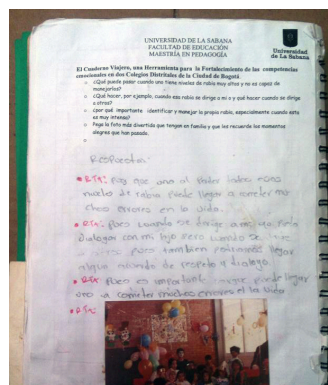 UNIVERSIDAD DE LA SABANA
FACULTAD DE EDUCACIÓN
MAESTRÍA EN PEDAGOGÍA
Universidad
de La Sabana
El Cuaderno Viajero, una Herramienta para la Fortalecimiento de las competencias
emocionales en dos Colegios Distritales de la Ciudad de Bogotá.
○ ¿Qué puede pasar cuando uno tiene niveles de rabia muy altos y no es capaz de
manejarlos?
○ ¿Qué hacer, por ejemplo, cuando esa rabia se dirige a mí o y qué hacer cuando se dirige
a otros?
○ ¿por qué importante identificar y manejar la propia rabia, especialmente cuando esta
es muy intensa?
○ Pega la foto más divertida que tengan en familia y que les recuerde los momentos
alegres que han pasado.
○
Respuestas:
• RTA: que uno al haber todos esos
nivele de rabia puede llegar a cometer mu
chos errores en la vida.
• RTA: pues cuando se dirige a mi
dialogar con mi hijo pero cuando se
a otros pues tambien podriamos llegar
algun acuerdo de respeto y dialogo.
• RTA pues es important puede llegar
uno a cometer muchos errores el la vida
• RTA: